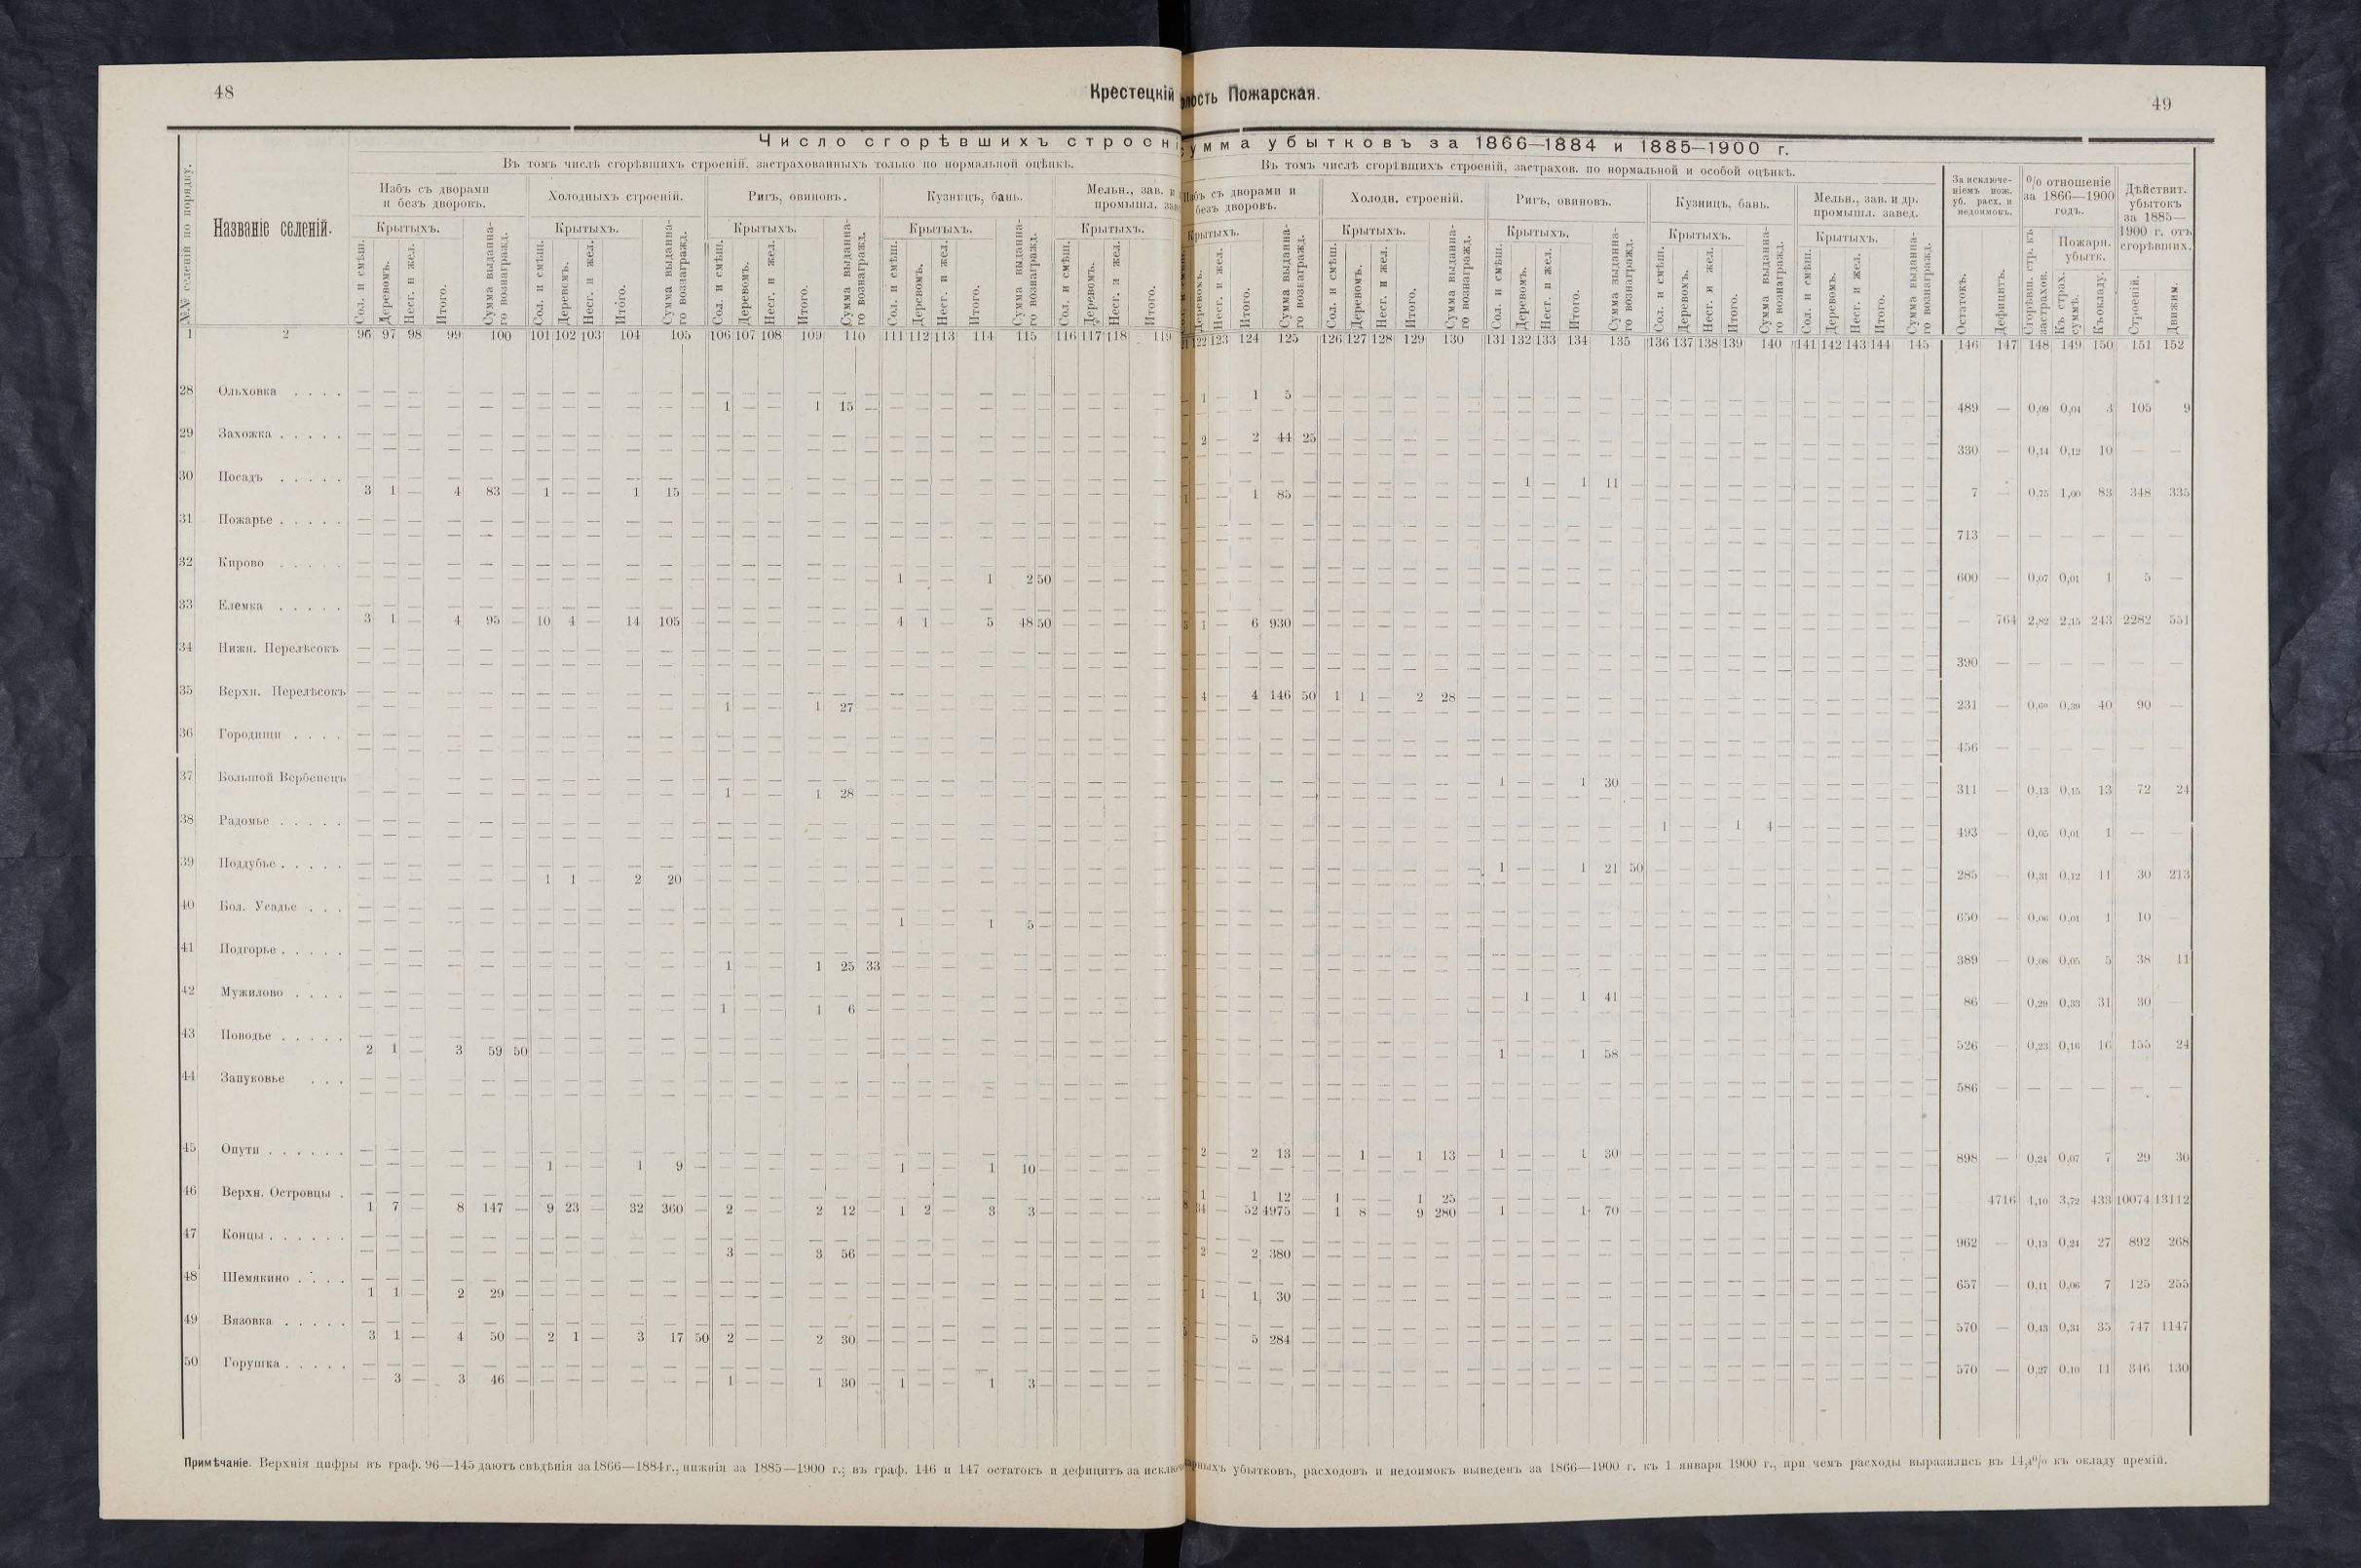 48
Крестецкій
Число сгорѣвшихъ строені
Въ томъ числѣ сгорѣвшихъ строеній, застрахованныхъ только по нормальной оцѣнкѣ.
№№ селеній по порядку.
Названіе селеній.
Избъ съ дворами и безъ дворовъ.
Холодныхъ строеній.
Ригъ, овиновъ.
Кузницъ, бань.
Мельн., зав. и
промышл. зав
Крытыхъ. Крытыхъ. Крытыхъ. Крытыхъ. Крытыхъ.
Сол. и смѣш. Деревомъ. Несг. и жел. Итого. Сумма выданна-го вознагражд.
Сол. и смѣш. Деревомъ. Несг. и жел. Итого. Сумма выданна-го вознагражд.
Сол. и смѣш. Деревомъ. Несг. и жел. Итого. Сумма выданна-го вознагражд.
Сол. и смѣш. Деревомъ. Несг. и жел. Итого. Сумма выданна-го вознагражд.
Сол. и смѣш. Деревомъ. Несг. и жел. Итого.
1 2 96 97 98 99 100 101 102 103 104 105 106 107 108 109 110 111 112 113 114 115 116 117 118 119
28 Ольховка
1 — — 1 15 —
29 Захожка
30 Посадъ
3 1 — 4 83 — 1 — — 1 15 —
31 Пожарье
32 Кирово
1 — — 1 2 50
33 Елемка
3 1 — 4 95 — 10 4 — 14 105 — 4 1 — 5 48 50
34 Нижн. Перелѣсокъ
35 Верхн. Перелѣсокъ
1 — — 1 27 —
36 Городищи
37 Большой Вербенецъ
1 — — 1 28 —
38 Радомье
39 Поддубье
1 1 — 2 20 —
40 Бол. Усадье
1 — — 1 5 —
41 Подгорье
1 — — 1 25 33
42 Мужилово
1 — — 1 6 —
43 Поводье
2 1 — 3 59 50
44 Запуковье
45 Опути
1 — — 1 9 — 1 — — 1 10 —
46 Верхн. Островцы
1 7 — 8 147 — 9 23 — 32 360 — 2 — — 2 12 — 1 2 — 3 3 —
47 Концы
3 — — 3 56 —
48 Шемякино
1 1 — 2 29 —
49 Вязовка
3 1 — 4 50 — 2 1 — 3 17 50 2 — — 2 30 —
50 Горушка
— 3 — 3 46 — 1 — — 1 30 — 1 — — 1 3 —
Примѣчаніе. Верхнія цифры въ граф. 96—145 даютъ свѣдѣнія за 1866—1884 г., нижнія за 1885—1900 г.; въ граф. 146 и 147 остатокъ и дефицитъ за исключ
49
лость Пожарская.
умма убытковъ за 1866—1884 и 1885—1900 г.
Въ томъ числѣ сгорѣвшихъ строеній, застрахов. по нормальной и особой оцѣнкѣ.
Избъ съ дворами и безъ дворовъ.
Холодн. строеній.
Ригъ, овиновъ.
Кузницъ, бань.
Мельн., зав. и др. промышл. завед.
За исключе-ніемъ пож. уб. расх. и недоимокъ.
% отношеніе за 1866—1900 годъ.
Дѣйствит. убытокъ за 1885—1900 г. отъ сгорѣвших.
Крытыхъ. Крытыхъ. Крытыхъ. Крытыхъ. Крытыхъ.
Пожарн. убытк.
Деревомъ. Несг. и жел. Итого. Сумма выданна-го вознагражд.
Сол. и смѣш. Деревомъ. Несг. и жел. Итого. Сумма выданна-го вознагражд.
Сол. и смѣш. Деревомъ. Несг. и жел. Итого. Сумма выданна-го вознагражд.
Сол. и смѣш. Деревомъ. Несг. и жел. Итого. Сумма выданна-го вознагражд.
Сол. и смѣш. Деревомъ. Несг. и жел. Итого. Сумма выданна-го вознагражд.
Остатокъ. Дефицитъ. Сгорѣвш. стр. къ застрахов. Къ страх. суммѣ. Къ окладу. Строеній. Движим.
122 123 124 125 126 127 128 129 130 131 132 133 134 135 136 137 138 139 140 141 142 143 144 145 146 147 148 149 150 151 152
1 — 1 5 —
489 — 0,09 0,04 3 105 9
2 — 2 44 25
330 — 0,14 0,12 10 — —
1 — 1 11 —
— — 1 85 —
7 — 0,75 1,00 83 348 335
713 — — — — — —
600 — 0,07 0,01 1 5 —
1 — 6 930 —
— 764 2,82 2,15 243 2282 551
390 — — — — — —
4 — 4 146 50 1 1 — 2 28 —
231 — 0,60 0,39 40 90 —
456 — — — — — —
1 — — 1 30 —
311 — 0,13 0,15 13 72 24
1 — — 1 4 —
493 — 0,05 0,01 1 — —
1 — — 1 21 50
285 — 0,31 0,12 11 30 213
650 — 0,06 0,01 1 10 —
389 — 0,08 0,05 5 38 11
1 — 1 41 —
86 — 0,29 0,33 31 30 —
1 — — 1 58 —
526 — 0,23 0,16 16 155 24
586 — — — — — —
2 — 2 13 — — 1 — 1 13 — 1 — — 1 30 —
898 — 0,24 0,07 7 29 30
1 — 1 12 — 1 — — 1 25 —
34 — 52 4975 — 1 8 — 9 280 — 1 — — 1 70 —
— 4716 4,10 3,72 433 10074 13112
2 — 2 380 —
962 — 0,13 0,24 27 892 268
1 — 1 30 —
657 — 0,11 0,06 7 125 255
5 284 —
570 — 0,43 0,34 35 747 1147
570 — 0,27 0,10 11 346 130
арныхъ убытковъ, расходовъ и недоимокъ выведенъ за 1866—1900 г. къ 1 января 1900 г., при чемъ расходы выразились въ 14,4% къ окладу премій.